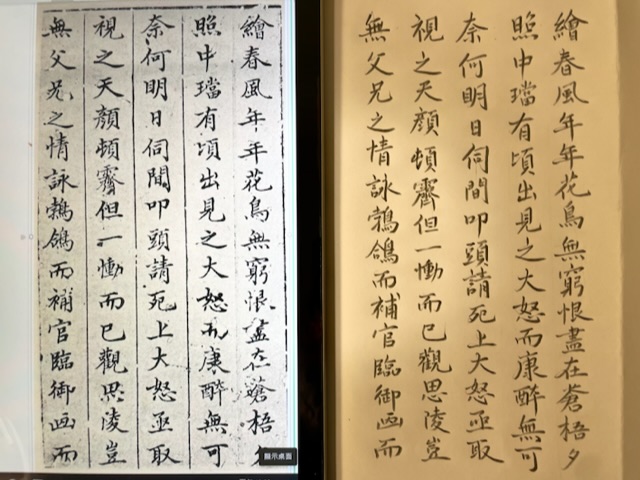 繪春風年年花鳥無窮恨盡在蒼梧夕
照中璫有頃出見之大怒而康醉無可
奈何明日伺間叩頭請死上大怒亟取
視之天顏頓霽但一慟而已觀思陵豈
無父兄之情詠鵓鴿而補官臨御画而
顯示桌面
繪春風年年花鳥無窮恨盡在蒼梧夕
照中璫有頃出見之大怒而康醉無可
奈何明日伺間叩頭請死上大怒亟取
視之天顏頓霽但一慟而已觀思陵豈
無父兄之情詠鵓鴿而補官臨御画而